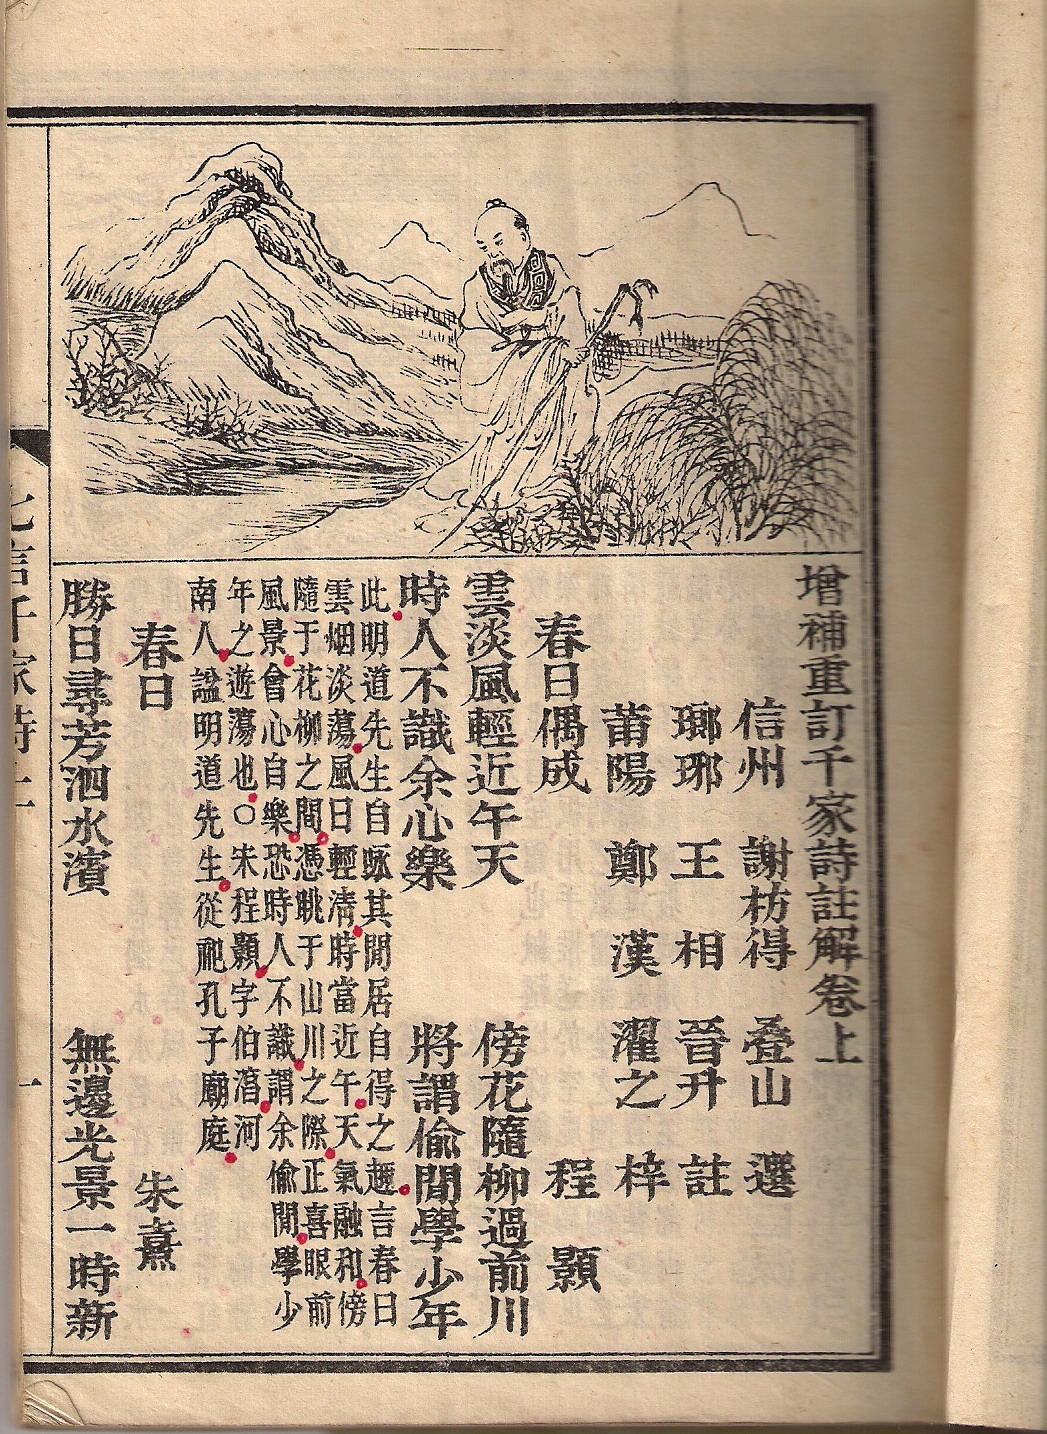 增補重訂千家詩註解卷上
信州 謝枋得 疊山 選
瑯琊 王相 晉升 註
莆陽 鄭漢 濯之 梓
春日偶成 程顥
雲淡風輕近午天 傍花隨柳過前川
時人不識余心樂 將謂偷閒學少年
此明道先生自咏其閒居自得之趣言春日
雲烟淡蕩風日輕清時當近午天氣融和傍
隨于花柳之間憑眺于山川之際正喜眼前
風景會心自樂恐時人不識謂余偷閒學少
年之遊蕩也○宋程顥字伯淳河
南人諡明道先生從祀孔子廟庭
春日 朱熹
勝日尋芳泗水濱 無邊光景一時新
千家詩上
一